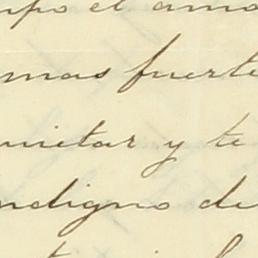 mpo el amo
mas fuerte
uietar y te
ndigno de